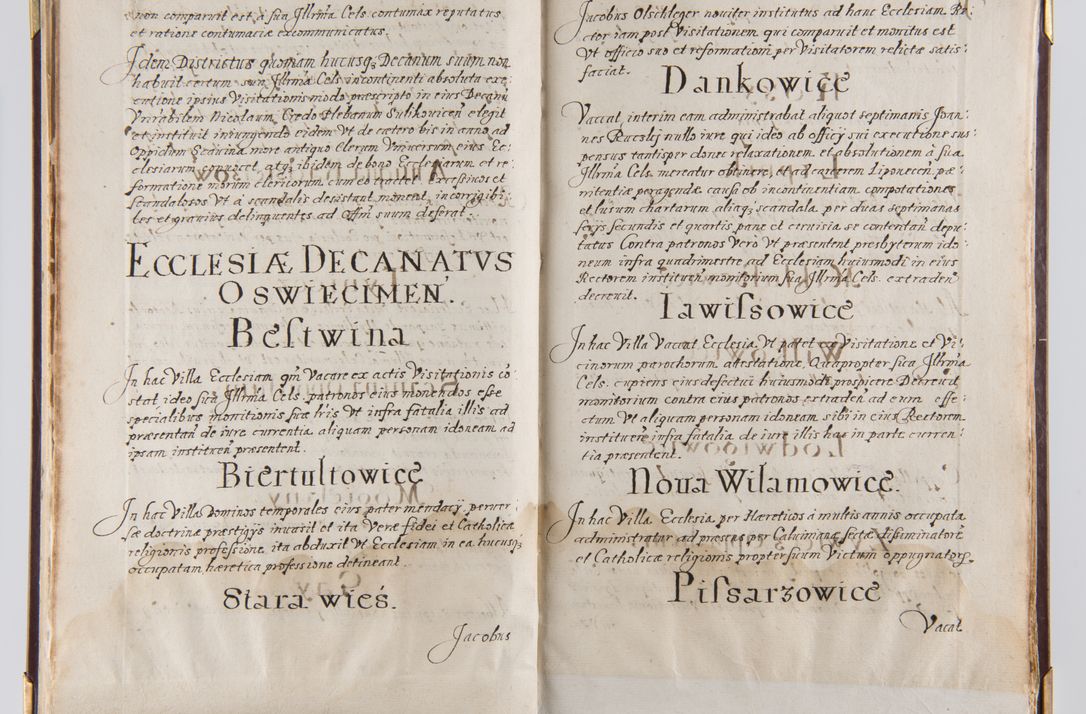 non comparuit est a sua Jllrma Cels contumax reputatus
et ratione contumaciæ excommunicatus.
Jdem Districtus quoniam hucusq; Decanum suum non
habuit certum sua Jllrma Cels incontinenti absoluta exe
cutione ipsius Visitationis modo præscripto in eius Decanũ
Vnrabilem Nicolaum Plebanum elegit
et instituit iniungendo eidem Vt de cætero bis in anno ad
Oppidum more antiquo Clerum Vniuersum eius Ec:
clesiarum atq; ibidem de bono Ecclesiarum et re:
formatione morum clericorum cum eo tractet. Excessiuos et
scandalosos Vt a scandalis desistant moneat, incorrigibi:
les et grauius delinquentes ad Offm suum deferat.
ECCLESIÆ DECANATVS
OSWIECIMEN.
Bestwina
Jn hac Villa Ecclesiam qm Vacare ex actis Visitationis cõ
stat ideo sua Jllrma Cels. patronos eius monendos esse
specialibus monitionis suæ lris Vt infra fatalia illis ad
præsentan de iure currentia aliquam personam idoneam ad
ipsam præsentent.
Biertultowice
Jn hac Villa Dominos temporales eius pater mendacÿ peruer:
sæ doctrinæ præstigÿs inuasit et ita Veræ fidei et Catholicæ
religionis professione ita abduxit Vt Ecclesiam in ea hucusq;
occupatam hæretica professione detineant.
Stara wieś.
Jacobus
Jacobus Olschleger nouiter institutus ad hanc Ecclesiam Re:
ctor iam post Visitationem qui comparuit et monitus est
Vt officio suo et reformationi per Visitatorem relictæ satis:
faciat.
Dankowice
Vaccat interim eam administrabat aliquot septimanis Joan:
nes nullo iure qui ideo ab officÿ sui executione sus:
pensus tantisper donec relaxationem et absolutionem à sua
Jllrma Cels. mereatur obtinere, et ad carcerem Liponecen pæ:
nitentiæ peragendæ causa ob incontinentiam compotationes
et lusum chartarum aliaq; scandala per duas septimanas
ferÿs secundis et quartis pane et ceruisia se contentan depu:
tatus Contra patronos Vero Vt præsentent presbyterum ido:
neum infra quadrimestre ad Ecclesiam huiusmodi in eius
Rectorem instituen monitorium sua Jllrma Cels. extraden
decreuit.
Iawissowice
Jn hac Villa Vaccat Ecclesia Vt patet ex Visitatione et Vi:
cinorum parochorum attestatione. Quapropter sua Jllrma
Cels. cupiens eius defectui huiusmodi prospicere Decreuit
monitorium contra eius patronos extraden ad eum effe:
ctum Vt aliquam personam idoneam sibi in eius Rectorem
instituen infra fatalia de iure illis hac in parte curren:
tia præsentent.
Noua Wilamowice.
Jn hac Villa Ecclesia per Hæreticos à multis annis occupata
administratur ad præsens per Caluinianæ sectæ dissiminatore
et Catholicæ religionis propter suum Victum oppugnatorẽ
Pissarzowice
Vacat